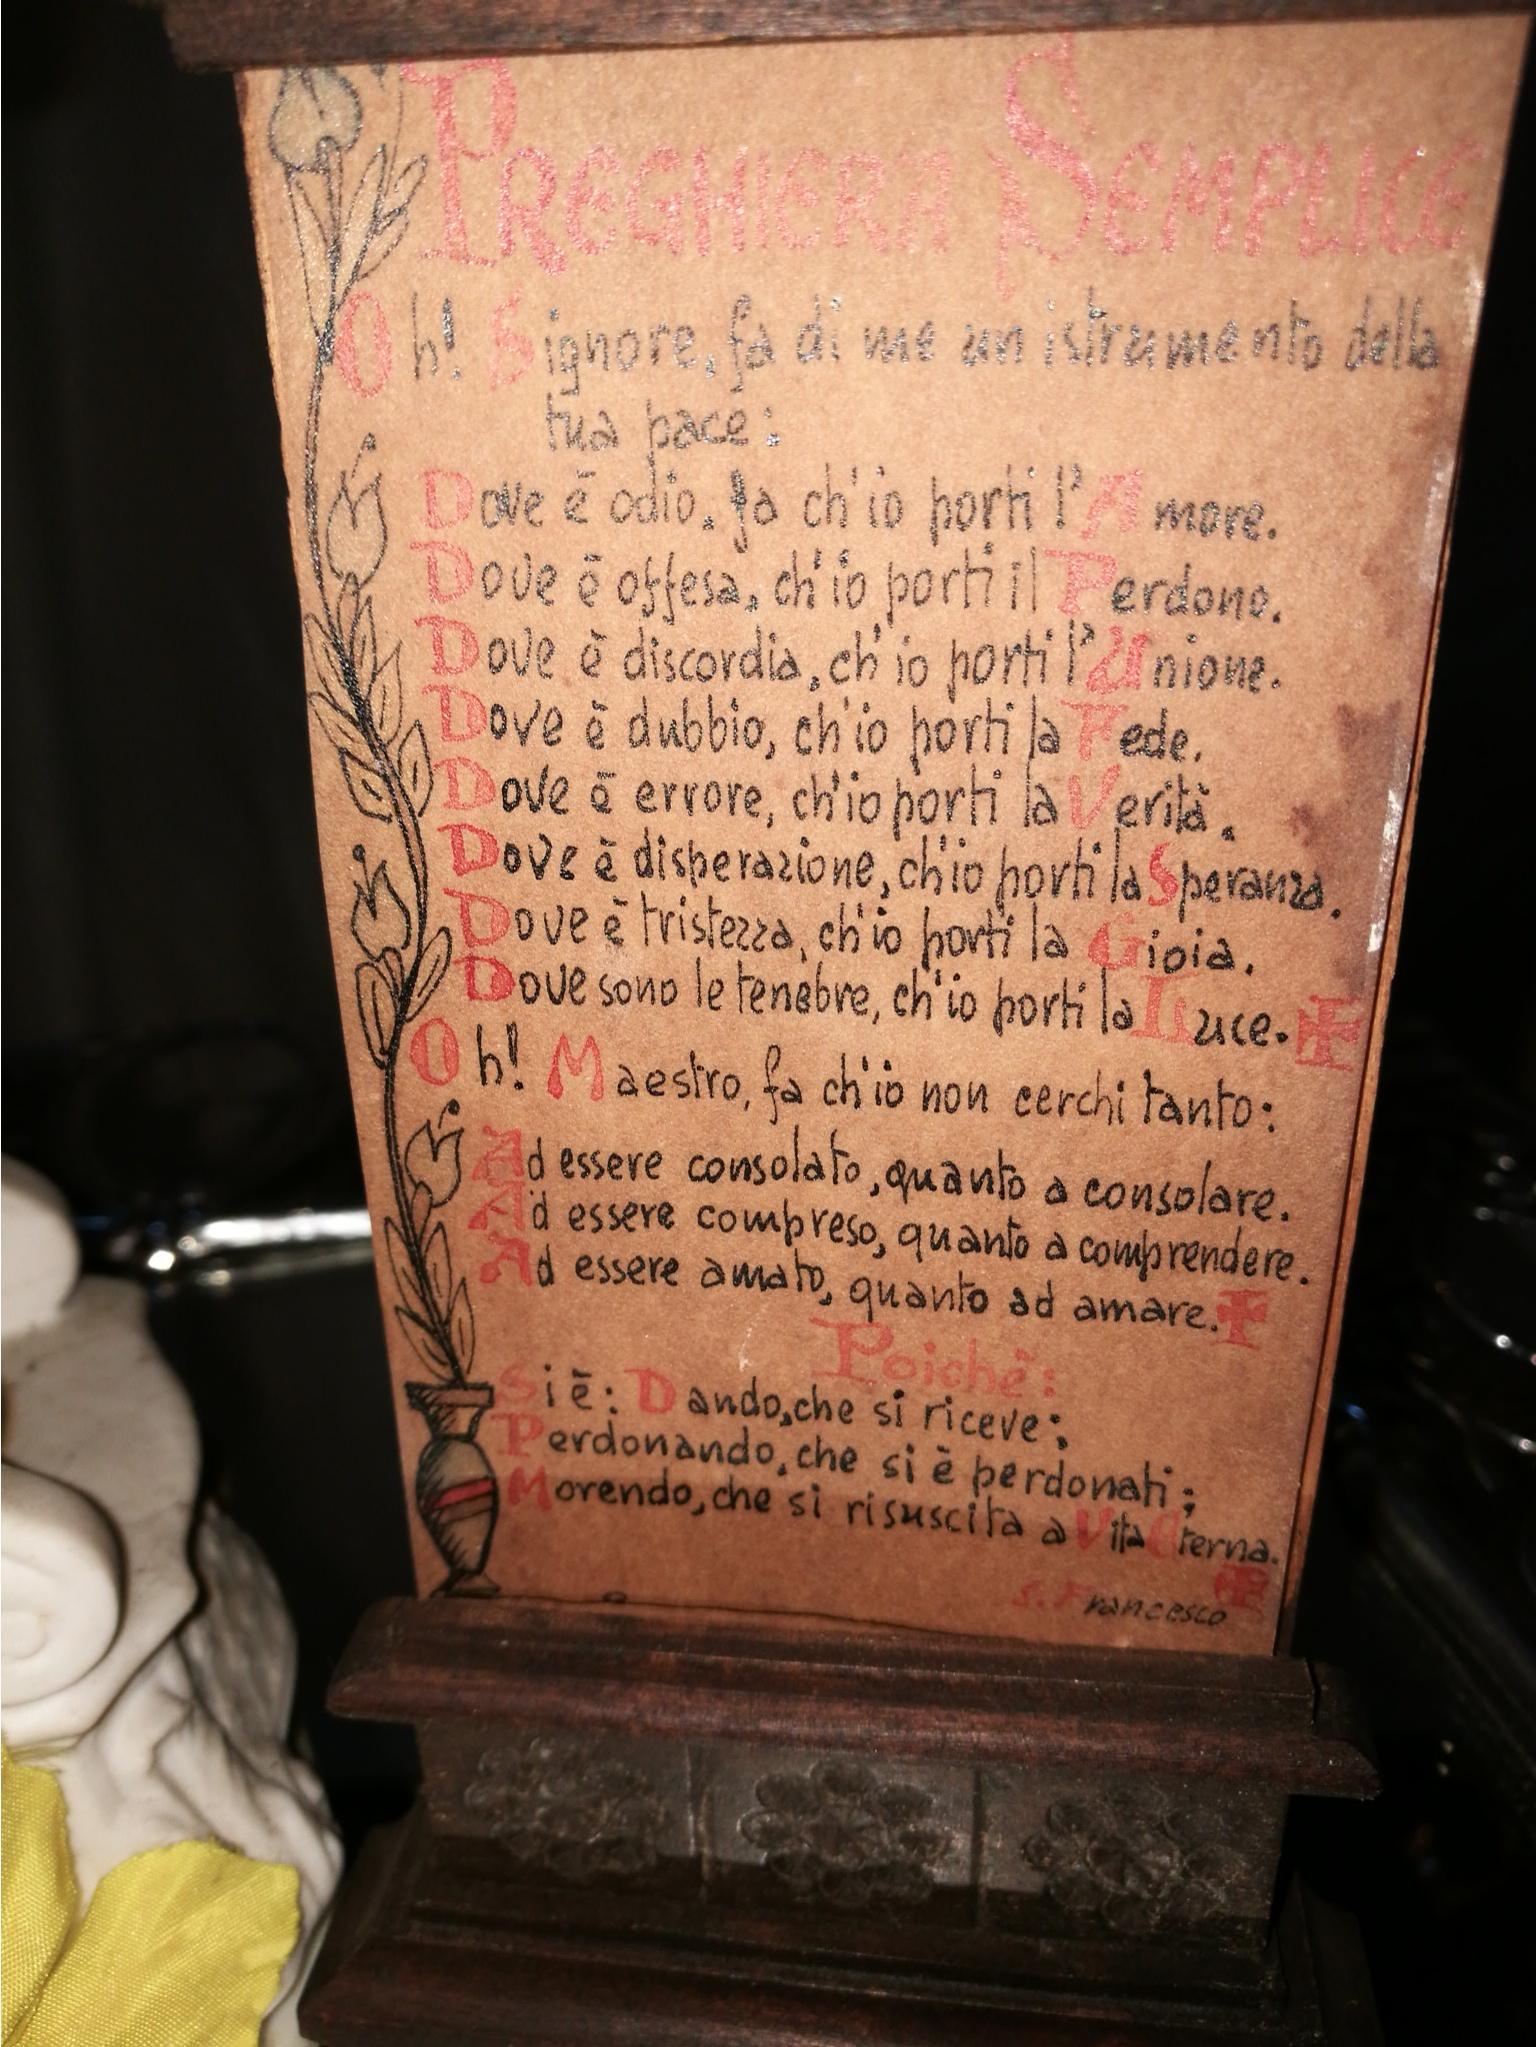 PREGHIERA SEMPLICE
Oh! Signore, fa di me un istrumento della
tua pace:
Dove è odio, fa ch'io porti l'Amore.
Dove è offesa, ch'io porti il Perdono.
Dove è discordia, ch'io porti l'Unione.
Dove è dubbio, ch'io porti la Fede.
Dove è errore, ch'io porti la Verità.
Dove è disperazione, ch'io porti la Speranza.
Dove è tristezza, ch'io porti la Gioia.
Dove sono le tenebre, ch'io porti la Luce.
Oh! Maestro, fa ch'io non cerchi tanto:
Ad essere consolato, quanto a consolare.
Ad essere compreso, quanto a comprendere.
Ad essere amato, quanto ad amare.
Poichè:
Si è: Dando, che si riceve:
Perdonando, che si è perdonati;
Morendo, che si risuscita a Vita Eterna.
S. Francesco